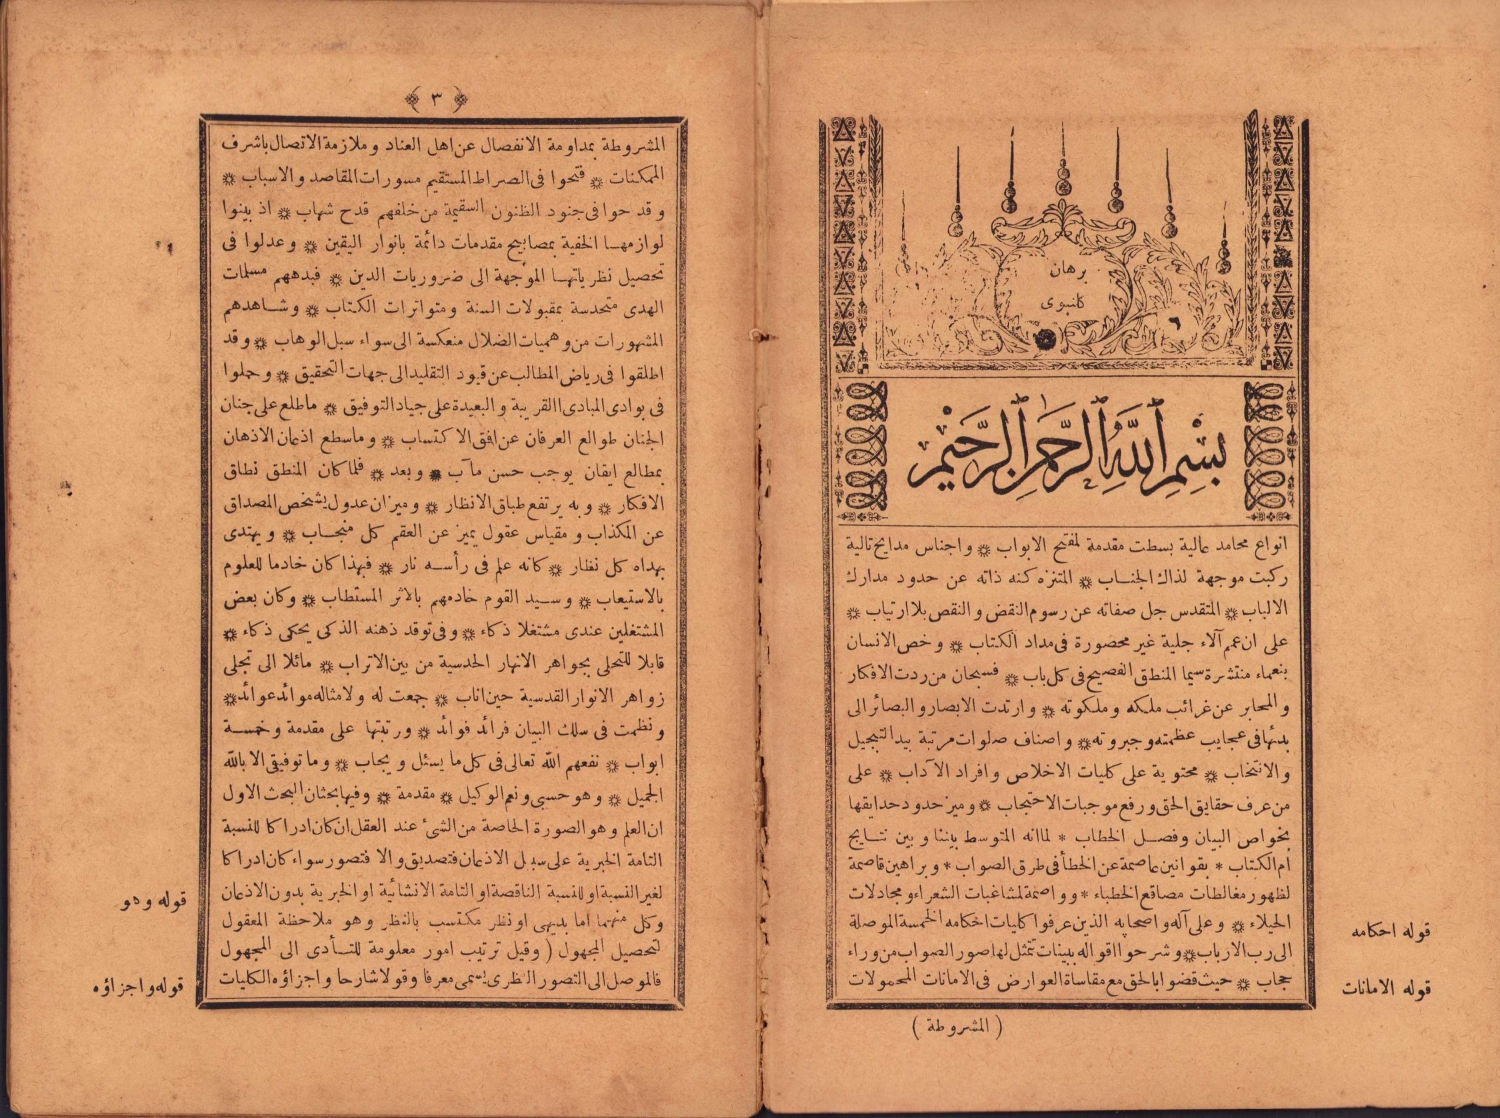 برهان
كلنبوى
بسم الله الرحمن الرحيم
انواع محامد عالية بسطت مقدمة لمفتح الابواب ۞ واجناس مدايح تالية
ركبت موجهة لذاك الجناب ۞ المتنزه كنه ذاته عن حدود مدارك
الالباب ۞ المتقدس جل صفاته عن رسوم النقض والنقص بلا ارتياب ۞
على ان عم آلاء جلية غير محصورة فى مداد الكتاب ۞ وخص الانسان
بنعماء منتشرة سيما المنطق الفصيح فى كل باب ۞ فسبحان من ردت الافكار
والمحابر عن غرائب ملكه وملكوته ۞ وارتدت الابصار والبصائر الى
بدئها فى عجايب عظمته وجبروته ۞ واصناف صلوات مرتبة بيد التبجيل
والانتخاب ۞ محتوية على كليات الاخلاص وافراد الآداب ۞ على
من عرف حقايق الحق ورفع موجبات الاحتجاب ۞ وميز حدود حدايقها
بخواص البيان وفصل الخطاب * لما انه المتوسط بيننا وبين نتايج
ام الكتاب * بقوانين عاصمة عن الخطأ فى طرق الصواب * وبراهين قاصمة
لظهور مغالطات مصاقع الخطباء * وواصمة لمشاغبات الشعراء ومجادلات
الحيلاء ۞ وعلى آله واصحابه الذين عرفوا كليات احكامه الخمسة الموصلة
الى رب الارباب ۞ وشرحوا اقواله ببينات تتمثل لها صور الصواب من وراء
حجاب ۞ حيث قضوا بالحق مع مقاساة العوارض فى الامانات المحمولات
قوله احكامه
قوله الامانات
( المشروطة )
﴿ ٣ ﴾
المشروطة بمداومة الانفصال عن اهل العناد وملازمة الاتصال باشرف
الممكنات ۞ فتحوا فى الصراط المستقيم مسورات المقاصد والاسباب ۞
وقد حوا فى جنود الظنون السقيمة من خلفهم قدح شهاب ۞ اذ بينوا
لوازمها الخفية بمصابيح مقدمات دائمة بانوار اليقين ۞ وعدلوا فى
تحصيل نظرياتها الموجهة الى ضروريات الدين ۞ فبدههم مسلمات
الهدى متحدسة بمقبولات السنة ومتواترات الكتاب ۞ وشاهدهم
المشهورات من وهميات الضلال منعكسة الى سواء سبل الوهاب ۞ وقد
اطلقوا فى رياض المطالب عن قيود التقليد الى جهات التحقيق ۞ وحملوا
فى بوادى المبادى القريبة والبعيدة على جياد التوفيق ۞ ما طلع على جنان
الجنان طوالع العرفان عن افق الاكتساب ۞ وما سطع اذعان الاذهان
بمطالع ايقان يوجب حسن مآب ۞ وبعد ۞ فلما كان المنطق نطاق
الافكار ۞ وبه يرتفع طباق الانظار ۞ وميزان عدول يشخص المصداق
عن المكذاب ومقياس عقول يميز عن العقم كل منجاب ۞ ويهتدى
بهداه كل نظار ۞ كانه علم فى رأسه نار ۞ فبهذا كان خادما للعلوم
بالاستيعاب ۞ وسيد القوم خادمهم بالاثر المستطاب ۞ وكان بعض
المشتغلين عندى مشتغلا ذكاء ۞ وفى توقد ذهنه الذكى يحكى ذكاء ۞
قابلا للتحلى بجواهر الانهار الحدسية من بين الاتراب ۞ مائلا الى تجلى
زواهر الانوار القدسية حين اناب ۞ جمعت له ولامثاله موائد عوائد ۞
ونظمت فى سلك البيان فرائد فوائد ۞ ورتبتها على مقدمة وخمسة
ابواب ۞ نفعهم الله تعالى فى كل ما يسئل ويجاب ۞ وما توفيقى الا بالله
الجميل ۞ وهو حسبى ونعم الوكيل ۞ مقدمة ۞ وفيها بحثان البحث الاول
ان العلم وهو الصورة الحاصة من الشئ عند العقل ان كان ادراكا للنسبة
التامة الخبرية على سبيل الاذعان فتصديق والا فتصور سواء كان ادراكا
لغير النسبة او للنسبة الناقصة او التامة الانشائية او الخبرية بدون الاذعان
وكل منهما اما بديهى او نظر مكتسب بالنظر وهو ملاحظة المعقول
لتحصيل المجهول ( وقيل ترتيب امور معلومة للتأدى الى المجهول
فالموصل الى التصور النظرى يسمى معرفا وقولا شارحا واجزاؤه الكليات
قوله وهو
قوله واجزاؤه